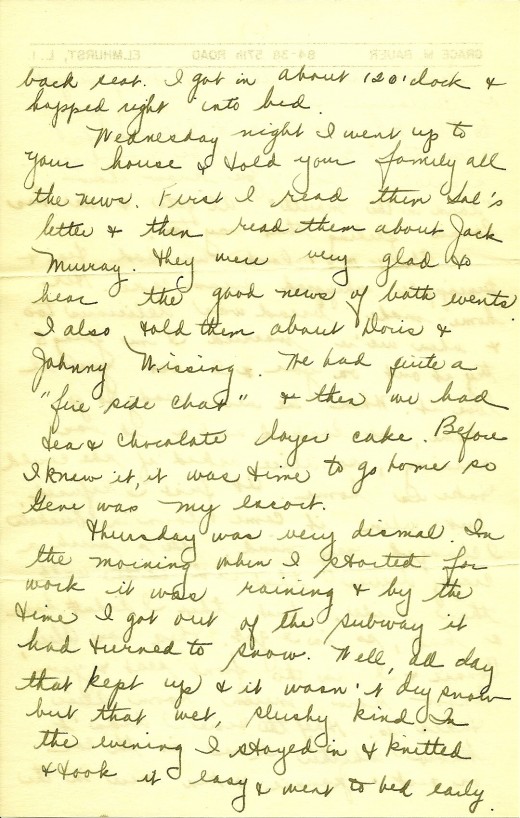 GRACE M BAUER 84-36 57th ROAD ELMHURST, L. I.
back seat. I got in about 12 o'clock &
hopped right into bed.
Wednesday night I went up to
your house & told your family all
the news. First I read them Sal's
letter & then read them about Jack
Murray. They were very glad to
hear the good news of both events.
I also told them about Doris &
Johnny Wissing. We had quite a
"fire side chat" & then we had
tea & chocolate layer cake. Before
I knew it, it was time to go home so
Gene was my escort.
Thursday was very dismal. In
the morning when I started for
work it was raining & by the
time I got out of the subway it
had turned to snow. Well, all day
that kept up & it wasn't dry snow
but that wet, slushy kind. In
the evening I stayed in & knitted
& took it easy & went to bed early.